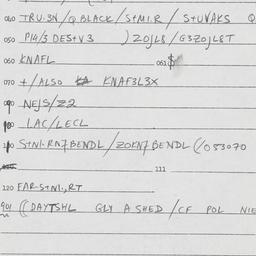 040 TRU.3N/Q BLACK/S+MI.R / S+UVAKS Q
050 P14/3 DES+V3 )ZOJL8/G3ZOJL8T
060 KNAFL 061 $
070 +/ALSO KNAF3L3X
090 NEJS/Z2
100 LAC/LECL
110 S+NI.RN7BENDL/ZOKN7BENDL (/053070
111
120 FAR-S+NI.,RT
901 ((DAYTSHL GLY A SHED/CF POL NIE